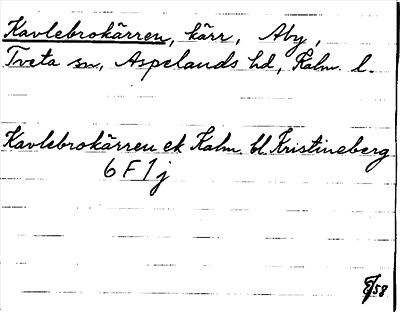 Kavlebrokärren, kärr, Aby,
Tveta sn, Aspelands hd, Kalm. l.
Kavlebrokärren ek Kalm bl Kristineberg
6 F 1 j
58